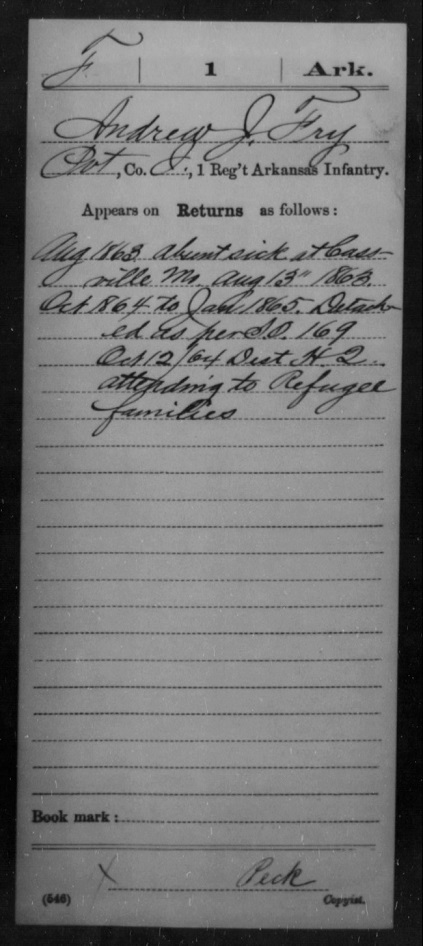 F. | 1 | Ark.
Andrew J. Fry
Pvt, Co. , 1 Reg't Arkansas Infantry.
Appears on Returns as follows:
Aug 1863. absent sick at Cass-
ville Mo. Aug 13" 1863.
Oct 1864 to Jan 1865. Detach-
ed as per S.O. 169
Oct 12/64 Dist H 2.
attending to Refugee
families
Book mark:
X Peck
(546) Copyist.